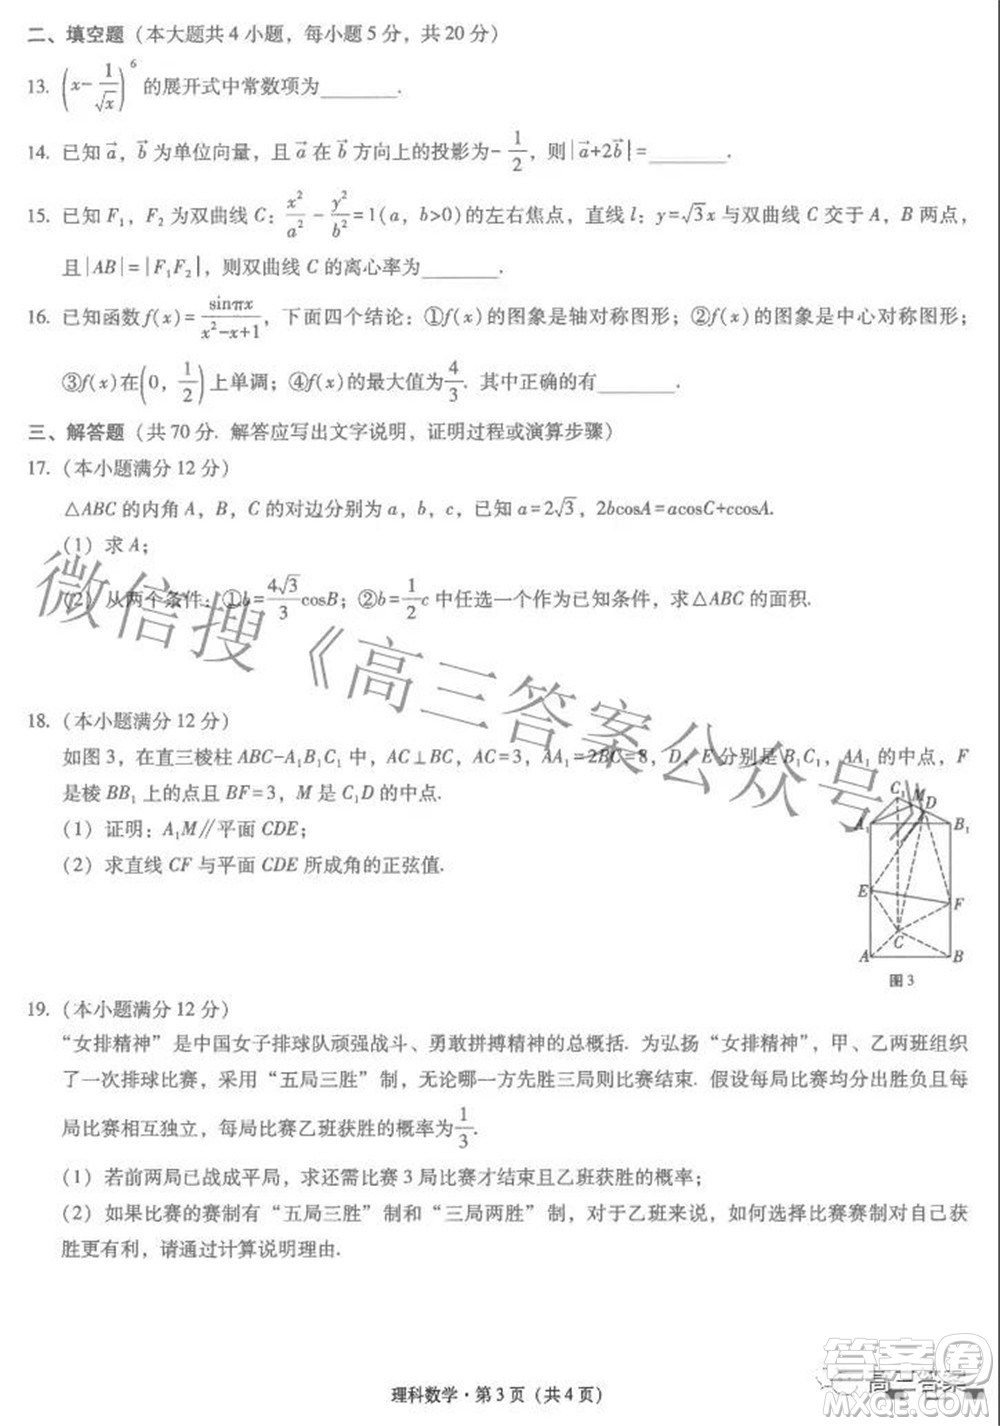 二、填空题（本大题共 4 小题，每小题 5 分，共 20 分）
13. (x-1/√x)^6 的展开式中常数项为______.
14. 已知 a⃗，b⃗ 为单位向量，且 a⃗ 在 b⃗ 方向上的投影为-1/2，则|a⃗+2b⃗|=______.
15. 已知 F₁，F₂ 为双曲线 C：x²/a²-y²/b²=1(a，b>0)的左右焦点，直线 l：y=√3x 与双曲线 C 交于 A，B 两点，
且|AB|=|F₁F₂|，则双曲线 C 的离心率为______.
16. 已知函数 f(x)=sinπx/(x²-x+1)，下面四个结论：①f(x)的图象是轴对称图形；②f(x)的图象是中心对称图形；
③f(x)在(0，1/2)上单调；④f(x)的最大值为4/3. 其中正确的有______.
三、解答题（共 70 分. 解答应写出文字说明，证明过程或演算步骤）
17.（本小题满分 12 分）
△ABC 的内角 A，B，C 的对边分别为 a，b，c，已知 a=2√3，2bcosA=acosC+ccosA.
（1）求 A；
（2）从两个条件：①b=4√3/3 cosB；②b=1/2 c 中任选一个作为已知条件，求△ABC 的面积.
18.（本小题满分 12 分）
如图 3，在直三棱柱 ABC-A₁B₁C₁ 中，AC⊥BC，AC=3，AA₁=2BC=8，D，E 分别是 B₁C₁，AA₁ 的中点，F
是棱 BB₁ 上的点且 BF=3，M 是 C₁D 的中点.
（1）证明：A₁M∥平面 CDE；
（2）求直线 CF 与平面 CDE 所成角的正弦值.
C₁ M D
A₁ B₁
E F
C
A B
图 3
19.（本小题满分 12 分）
“女排精神”是中国女子排球队顽强战斗、勇敢拼搏精神的总概括. 为弘扬“女排精神”，甲、乙两班组织
了一次排球比赛，采用“五局三胜”制，无论哪一方先胜三局则比赛结束. 假设每局比赛均分出胜负且每
局比赛相互独立，每局比赛乙班获胜的概率为1/3.
（1）若前两局已战成平局，求还需比赛 3 局比赛才结束且乙班获胜的概率；
（2）如果比赛的赛制有“五局三胜”制和“三局两胜”制，对于乙班来说，如何选择比赛赛制对自己获
胜更有利，请通过计算说明理由.
微信搜《高三答案公众号
理科数学·第 3 页（共 4 页）
高三答案
答案卷